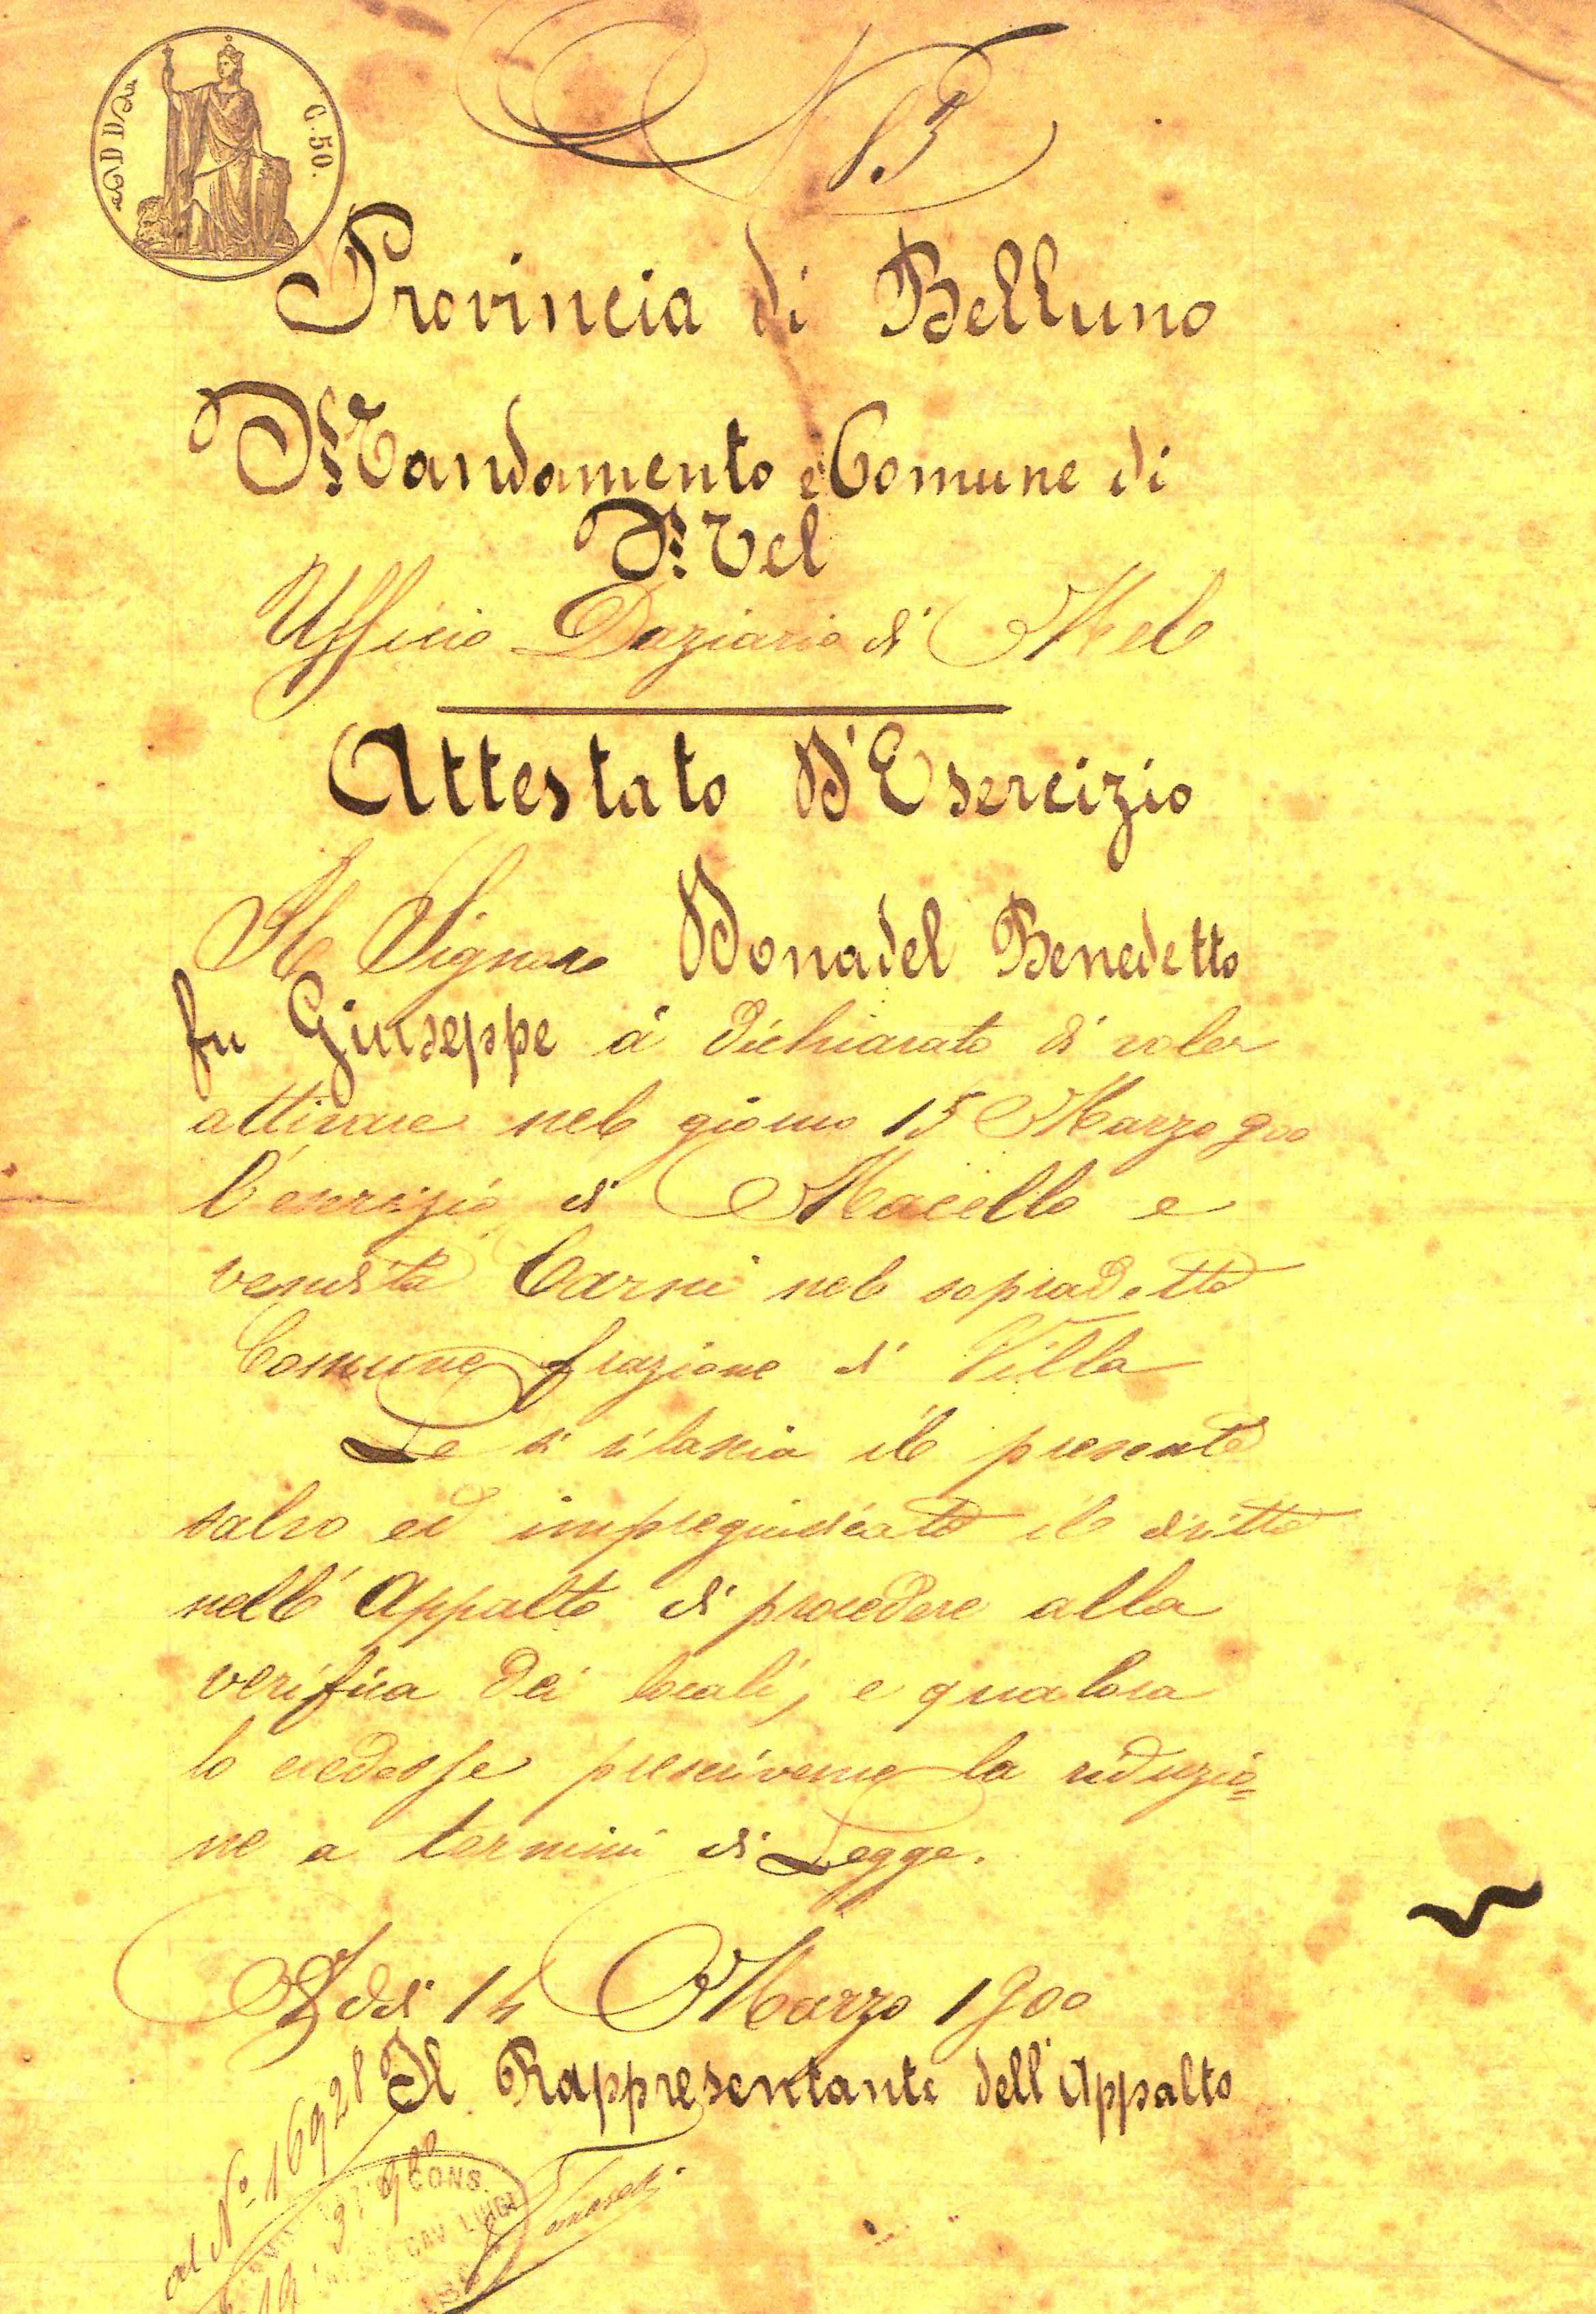 C. 50.
N 13
Provincia di Belluno
Mandamento e Comune di
Mel
Ufficio Daziario di Mel
Attestato D'Esercizio
Il Signore Donadel Benedetto
fu Giuseppe à dichiarato di voler
attivare nel giorno 15 Marzo 900
l'esercizio di Macello e
vendita Carni nel sopradetto
Comune frazione di Villa
Se si rilascia il presente
salvo ed impregiudicato il diritto
nell'Appalto di procedere alla
verifica dei locali, e qualora
lo credesse prescriverne la riduzio=
ne a termini di Legge.
Addì 14 Marzo 1900
Il Rappresentante dell'Appalto
al N.º 16928
19 3 900
CONS.
CAV. LUIGI